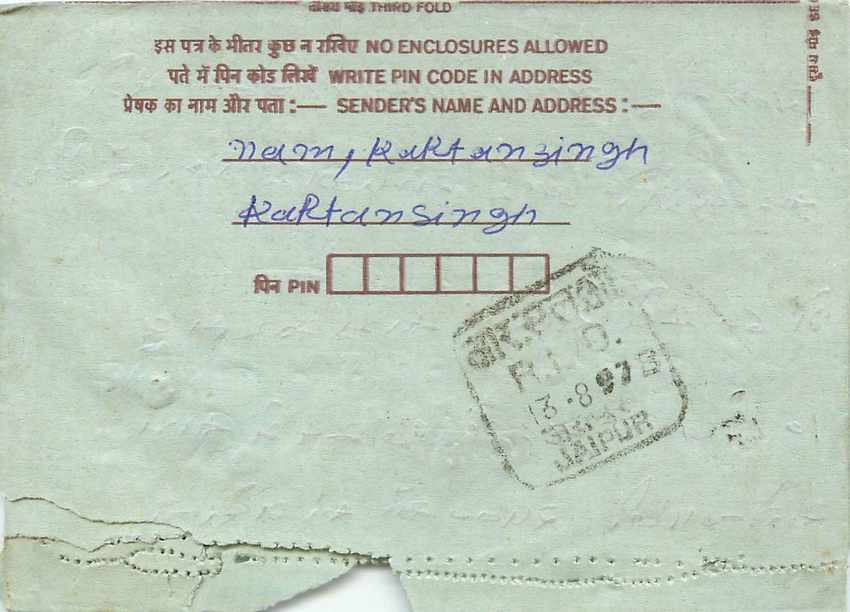 तीसरा मोड़ THIRD FOLD
इस पत्र के भीतर कुछ न रखिए NO ENCLOSURES ALLOWED
पते में पिन कोड लिखें WRITE PIN CODE IN ADDRESS
प्रेषक का नाम और पता :— SENDER'S NAME AND ADDRESS :—
nam, kartansingh
kartansingh
पिन PIN
13.8.97 B
JAIPUR